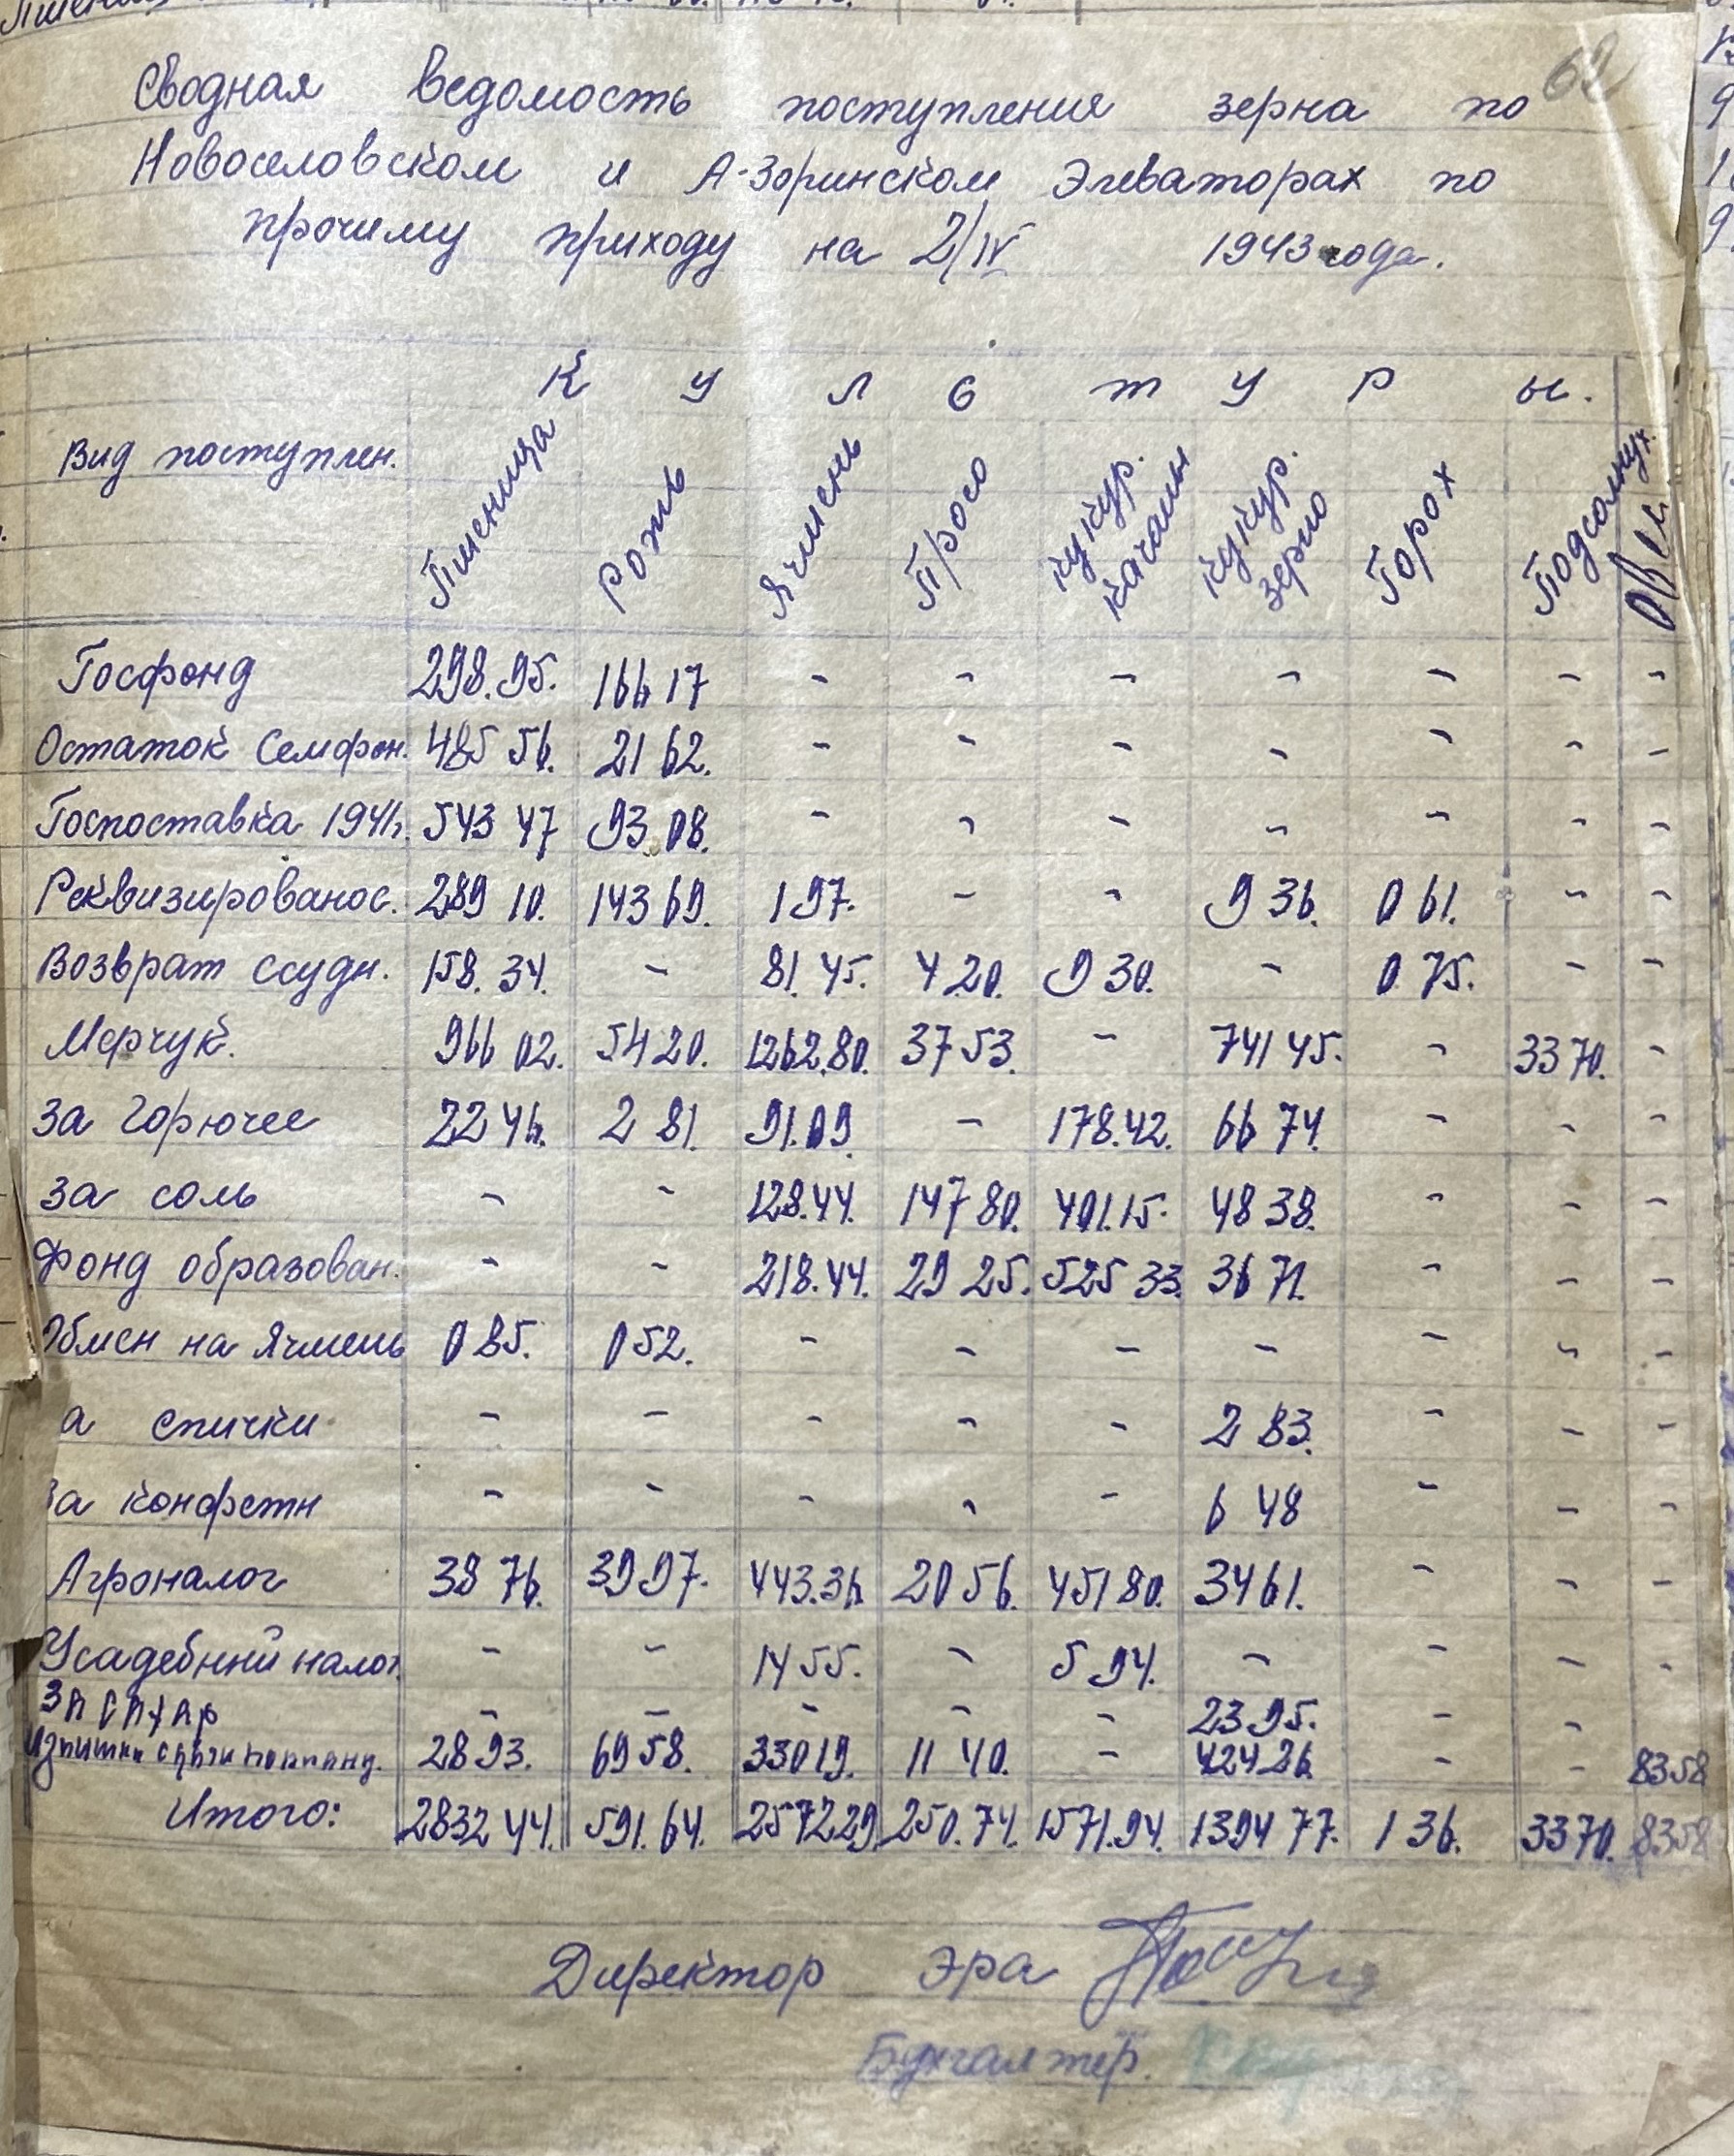 62
Сводная ведомость поступления зерна по
Новоселовском и А-Зоринском Элеваторах по
прочиму приходу на 2/IV 1943 года.
К у л ь т у р ы.
Вид поступлен. Пшеница Рожь Ячмень Просо Кукур. качаны Кукур. зерно Горох Подсолнух. Овес
Госфонд 298.95. 166 17 - - - - - - -
Остаток Семфон. 485 56. 21 62. - - - - - - -
Госпоставка 1941г. 543 47 93.08. - - - - - - -
Реквизированос. 289 10. 143 69. 1 97. - - 9 36. 0 61. - -
Возврат ссудн. 158. 34. - 81. 45. 4 20. 9 30. - 0 75. - -
Мерчук. 966 02. 54 20. 1262.80. 37 53. - 741 45. - 33 70. -
За горючее 22 46. 2 81. 91.09. - 178.42. 66 74. - - -
За соль - - 128.44. 147 80. 401.15. 48 38. - - -
Фонд образован. - - 218.44. 29 25. 525 33. 36 71. - - -
Обмен на Ячмень 0 85. 0 52. - - - - - - -
а спички - - - - - 2 83. - - -
За конфетн - - - - - 6 48 - - -
Агроналог 38 76. 39 97. 443.36. 20 56. 451 80. 34 61. - - -
Усадебний налог. - - 14 55. - 5 94. - - - -
За сахар - - - - - 23 95. - - -
28 93. 69 58. 330 19. 11 40. - 424 26. - - 83 58
Итого: 2832 44. 591. 64. 2572 29 250. 74. 1571.94. 1394 77. 1 36. 33 70. 83 58
Директор Эра
Бухгалтер.